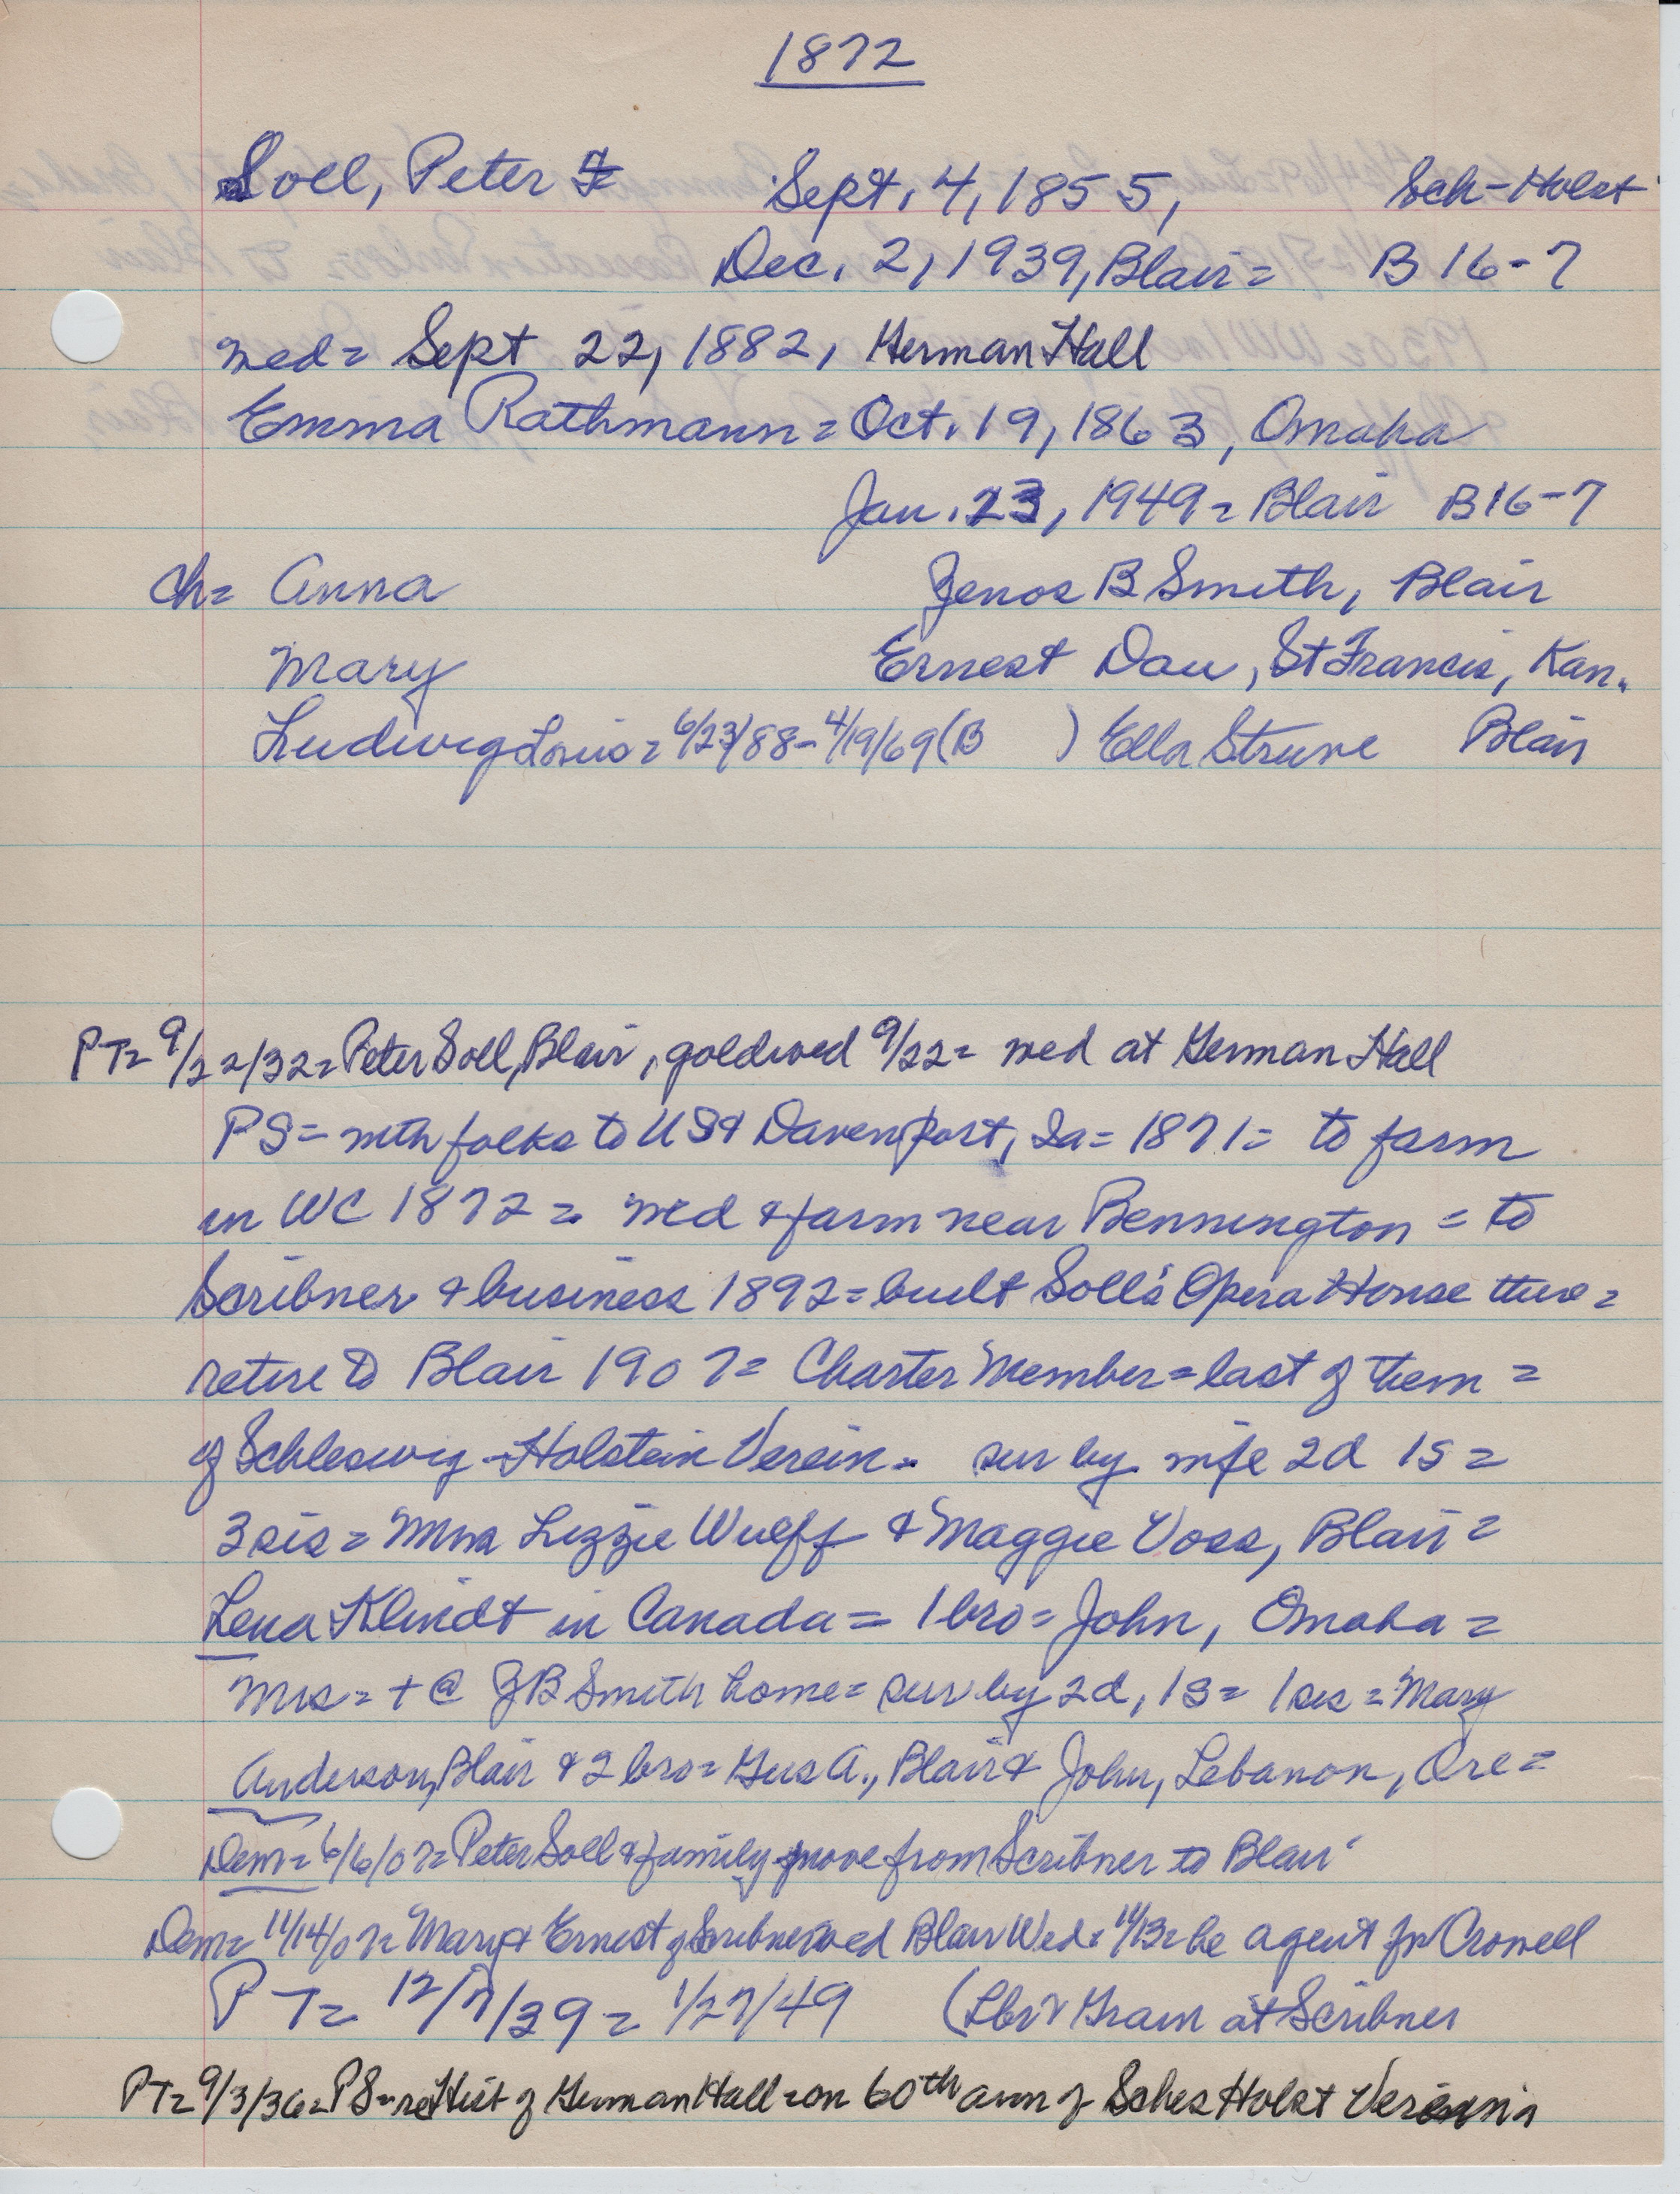 1872
Soll, Peter
Sept. 4, 1855, Sch-Holst
Dec. 2, 1939, Blair= B 16-7
wed= Sept 22, 1882, German Hall
Emma Rathmann= Oct. 19, 1863, Omaha
Jan. 23, 1949= Blair B16-7
ch= Anna Zenos B Smith, Blair
Mary Ernest Dau, St Francis, Kan.
Ludwig Louis= 6/23/88-4/19/69 (B ) Ella Struve Blair
PT= 9/22/32= Peter Soll, Blair, goldwed 9/22= wed at German Hall
PS= with folks to US & Davenport, Ia= 1871= to farm
in WC 1872= wed & farm near Bennington = to
Scribner & business 1892= built Soll's Opera House there=
retire to Blair 1907= Charter Member= last of them =
of Schleswig-Holstein Verein. sur by wife 2d 1s=
3 sis= Mmes Lizzie Wulff & Maggie Voss, Blair=
Lena Klindt in Canada= 1 bro= John, Omaha=
Mrs= + @ ZB Smith home= sur by 2d, 1s= 1 sis= Mary
Anderson, Blair & 2 bro= Gus A., Blair & John, Lebanon, Ore=
Dem= 6/6/07= Peter Soll & family move from Scribner to Blair
Dem= 11/14/07= Mary & Ernest of Scribner wed Blair Wed= 11/13= he agent for Crowell
PT= 12/7/39= 1/27/49 (Lbr & Grain at Scribner
PT= 9/3/36= PS= re Hist of German Hall= on 60th ann of Schles Holst Verein